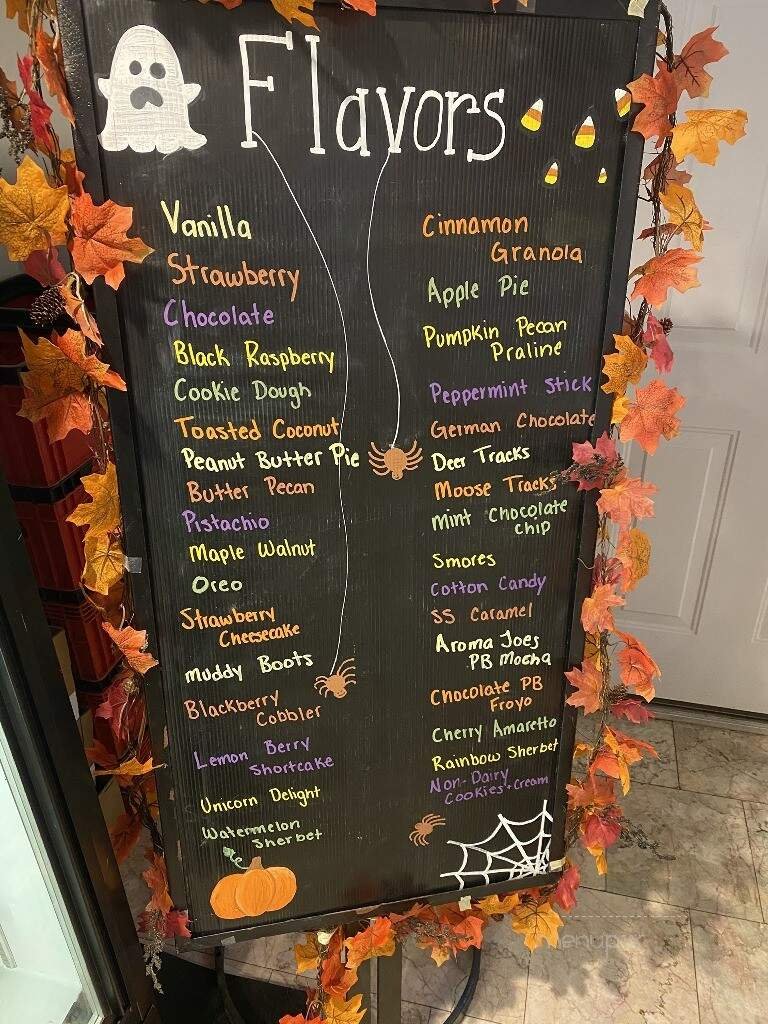 Flavors
Vanilla
Strawberry
Chocolate
Black Raspberry
Cookie Dough
Toasted Coconut
Peanut Butter Pie
Butter Pecan
Pistachio
Maple Walnut
Oreo
Strawberry
Cheesecake
Muddy Boots
Blackberry
Cobbler
Lemon Berry
Shortcake
Unicorn Delight
Watermelon
Sherbet
Cinnamon
Granola
Apple Pie
Pumpkin Pecan
Praline
Peppermint Stick
German Chocolate
Deer Tracks
Moose Tracks
Mint Chocolate
Chip
Smores
Cotton Candy
SS Caramel
Aroma Joes
PB Mocha
Chocolate PB
Froyo
Cherry Amaretto
Rainbow Sherbet
Non-Dairy
Cookies + Cream